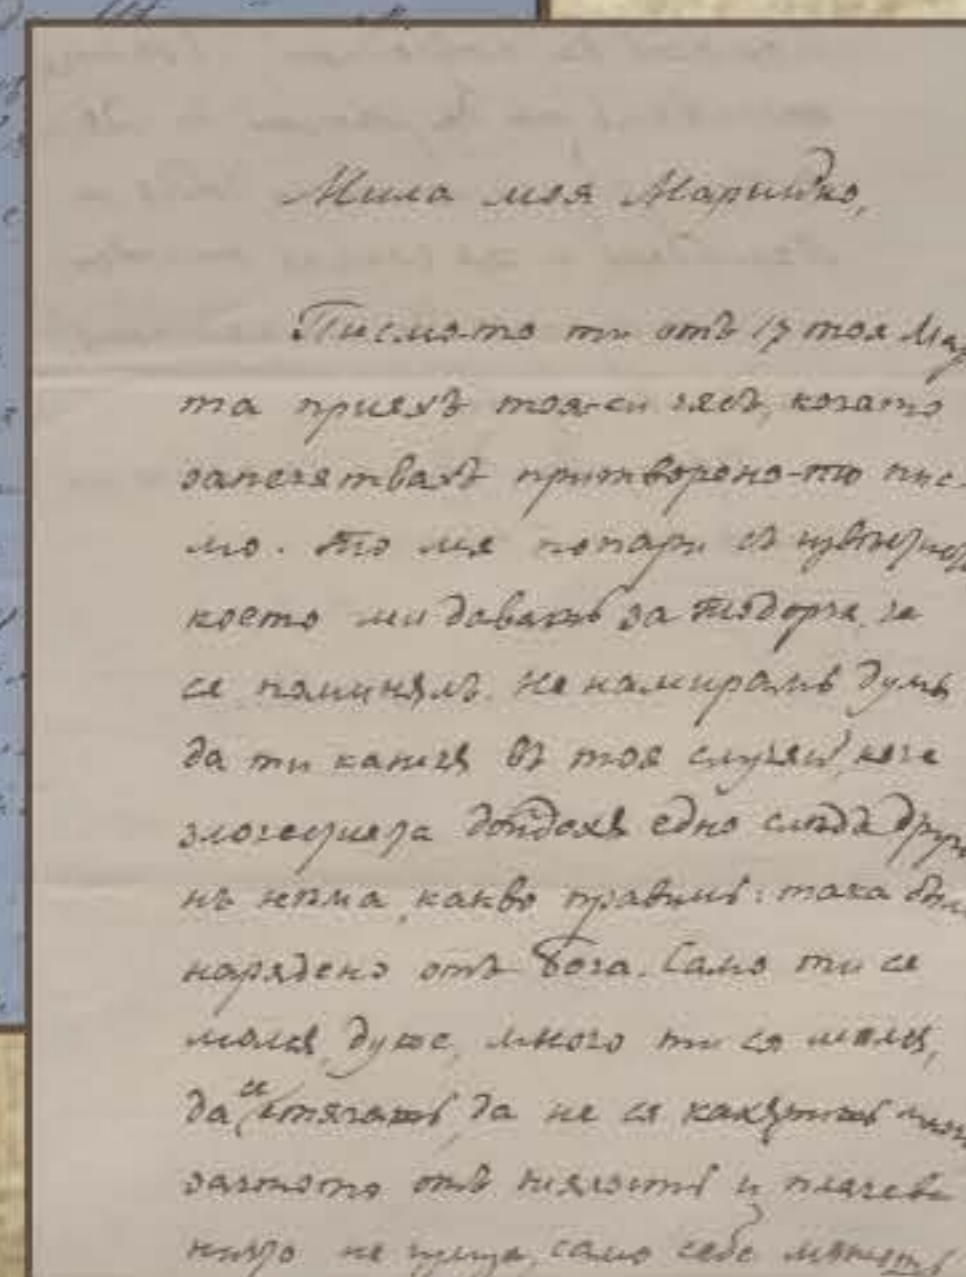 Мила моя Марийко,
Писмо-то ти отъ 17 тоя Мар
та приехъ тоя-си часъ, когато
запечатвахъ притворено-то пис-
мо. То мя попари съ
което ми давашь за Тодорча, че
ся поминялъ. Не намирамъ думы
да ти кажѫ въ тоя случай, кога
злочестиета дойдохѫ едно слѣдъ друго
нъ нѣма какво правишь: така было
нарядено отъ Бога. Само ти се
молѭ, душе, много ти ся молѭ,
да ся стягашь, да не ся какъришь много
защото отъ и плачеве
нищо не само себе